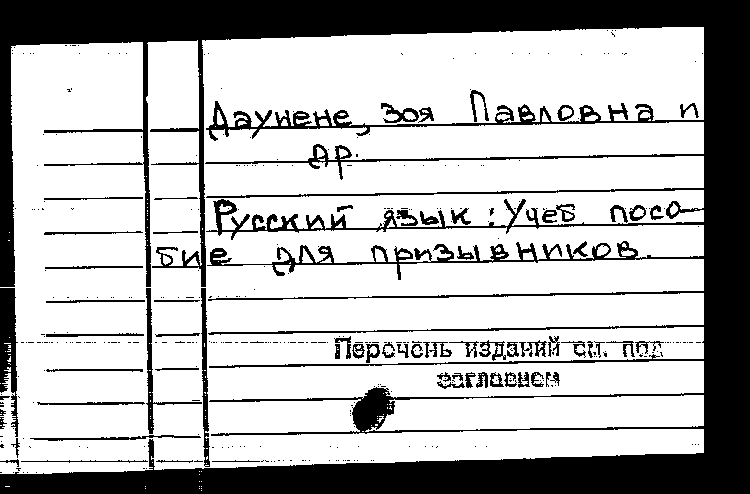 Даунене, Зоя Павловна и
др.
Русский язык : Учеб. посо-
бие для призывников.
Перечень изданий см. под
заглавием